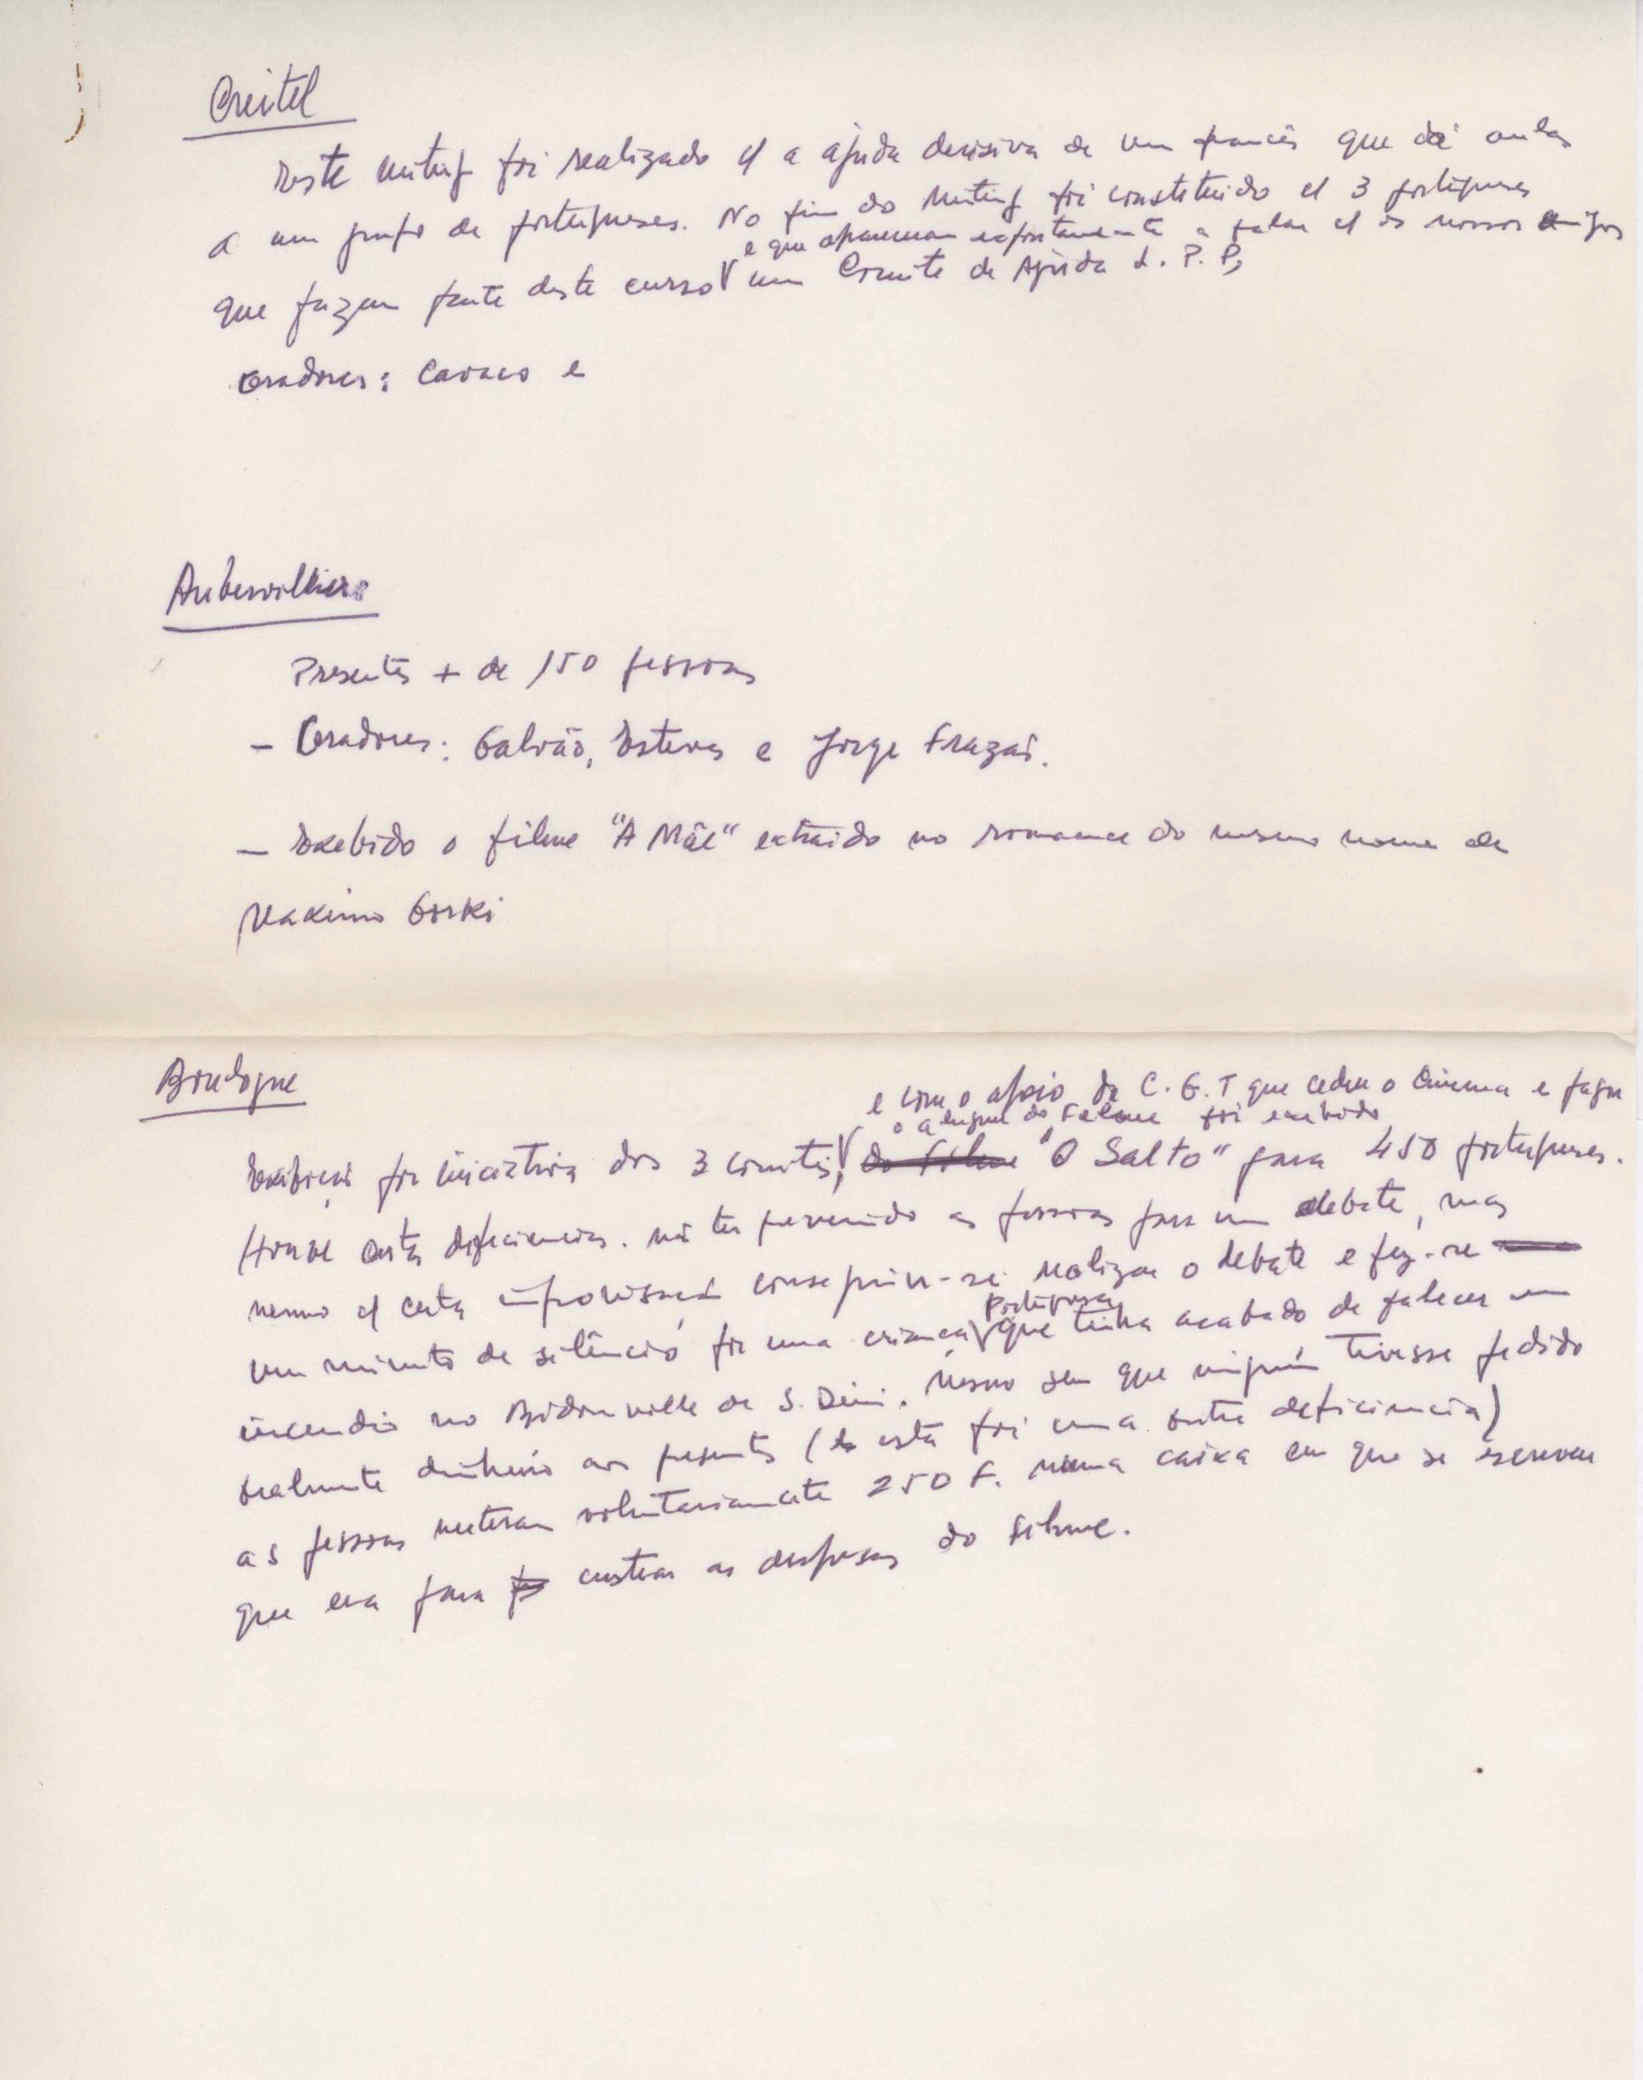 Creitel
Este miting foi realizado c/ a ajuda decisiva de um francês que dá aulas
a um grupo de portugueses. No fim do miting foi constituido c/ 3 portugueses
e que apareceram espontaneamente a falar c/ os nossos amigos
que fazem parte deste curso um Comite de Ajuda L. P. P,
Oradores: Cavaco e
Aubervilliers
Presentes + de 150 pessoas
- Oradores: Galvão, Esteves e Jorge Frazão.
- Exebido o filme "A Mãe" extraido no romance do mesmo nome de
Maximo Gorki
Boulogne
e com o apoio da C. G. T que cedeu o Cinema e pagou
o aluguel do Filme foi exebido
Exibição por iniciativa dos 3 comités, do Filme "O Salto" para 450 portugueses.
Houve certas deficiencias. não ter prevenido as pessoas para um debate, mas
mesmo c/ certa improvisação conseguiu-se realizar o debate e fez-se
Portuguesa
um minuto de silêncio por uma criança que tinha acabado de falecer num
incendio no Bidonville de S. Deni. Mesmo sem que ninguém tivesse pedido
oralmente dinheiro aos presentes (e esta foi uma outra deficiencia)
as pessoas meteram voluntariamente 250 F. numa caixa em que se escreveu
que era para custear as despesas do Filme.